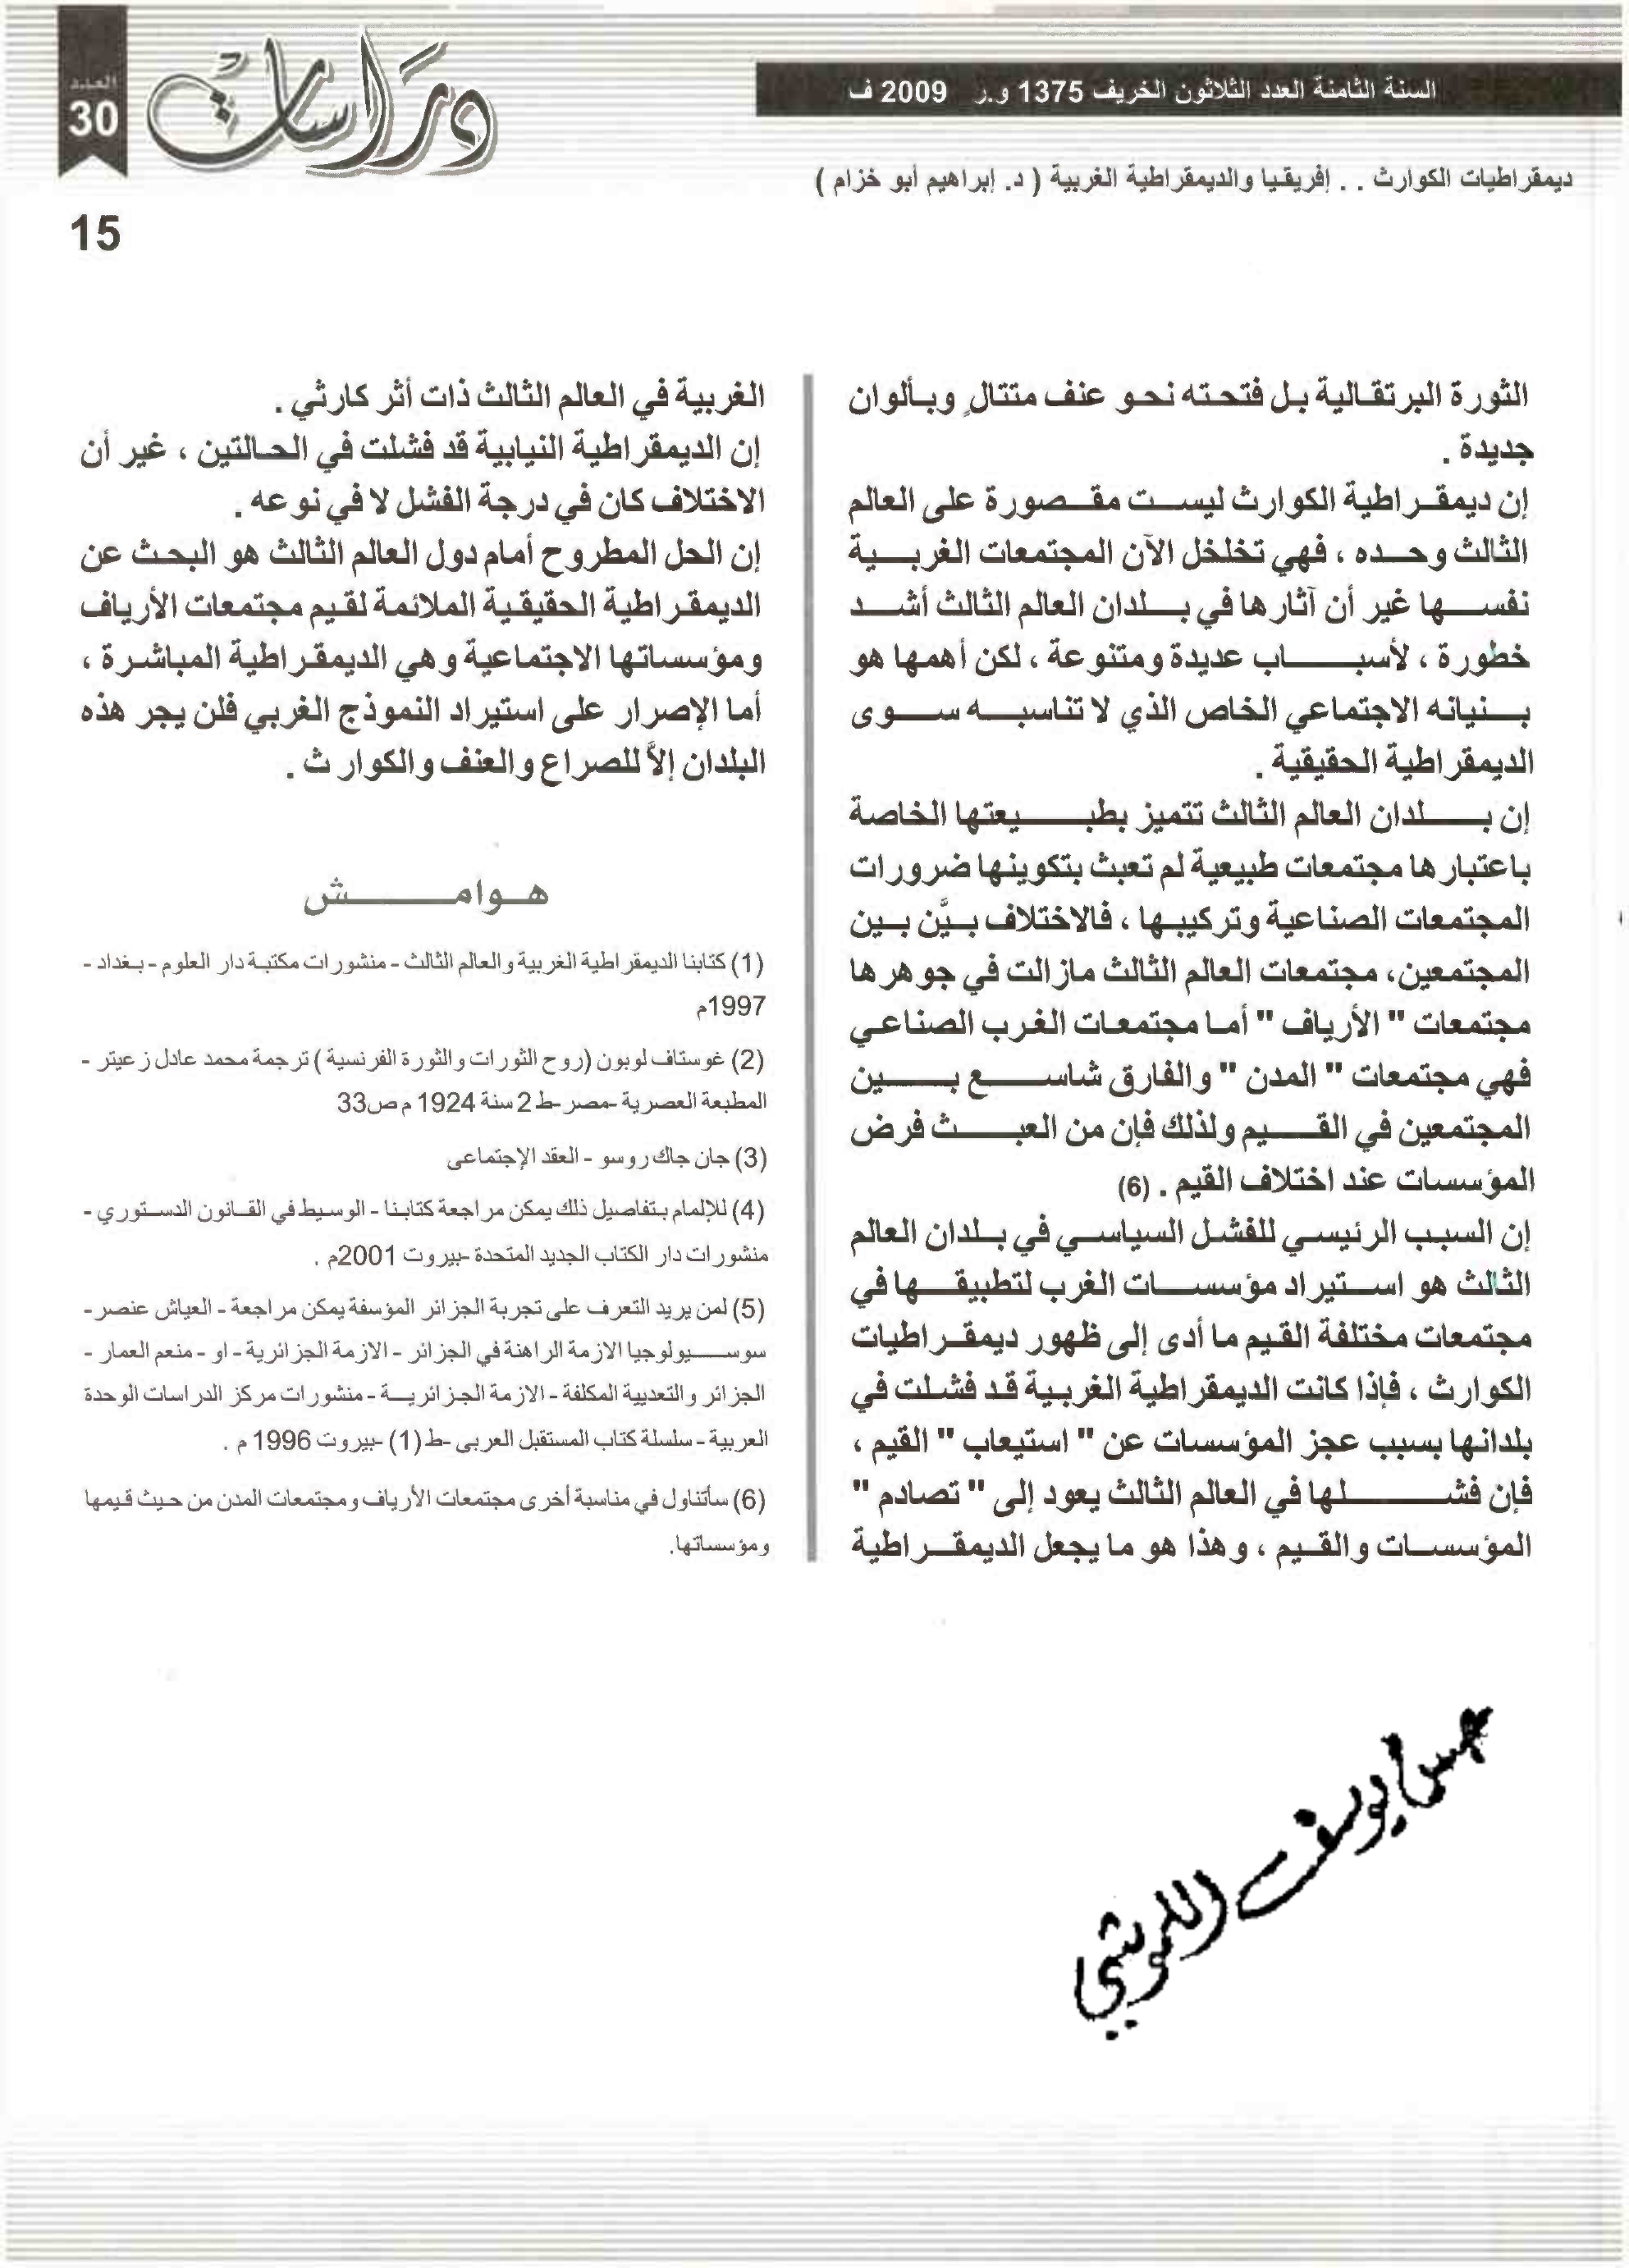 العدد
30
دراسات
السنة الثامنة العدد الثلاثون الخريف 1375 و.ر 2009 ف
ديمقراطيات الكوارث . . إفريقيا والديمقراطية الغربية ( د. إبراهيم أبو خزام )
15
الثورة البرتقالية بل فتحته نحو عنف متتالٍ وبألوان
جديدة .
إن ديمقراطية الكوارث ليست مقصورة على العالم
الثالث وحده ، فهي تخلخل الآن المجتمعات الغربية
نفسها غير أن آثارها في بلدان العالم الثالث أشد
خطورة ، لأسباب عديدة ومتنوعة ، لكن أهمها هو
بنيانه الاجتماعي الخاص الذي لا تناسبه سوى
الديمقراطية الحقيقية .
إن بلدان العالم الثالث تتميز بطبيعتها الخاصة
باعتبارها مجتمعات طبيعية لم تعبث بتكوينها ضرورات
المجتمعات الصناعية وتركيبها ، فالاختلاف بيَّن بين
المجتمعين، مجتمعات العالم الثالث مازالت في جوهرها
مجتمعات " الأرياف " أما مجتمعات الغرب الصناعي
فهي مجتمعات " المدن " والفارق شاسع بين
المجتمعين في القيم ولذلك فإن من العبث فرض
المؤسسات عند اختلاف القيم . (6)
إن السبب الرئيسي للفشل السياسي في بلدان العالم
الثالث هو استيراد مؤسسات الغرب لتطبيقها في
مجتمعات مختلفة القيم ما أدى إلى ظهور ديمقراطيات
الكوارث ، فإذا كانت الديمقراطية الغربية قد فشلت في
بلدانها بسبب عجز المؤسسات عن " استيعاب " القيم ،
فإن فشلها في العالم الثالث يعود إلى " تصادم "
المؤسسات والقيم ، وهذا هو ما يجعل الديمقراطية
الغربية في العالم الثالث ذات أثر كارثي .
إن الديمقراطية النيابية قد فشلت في الحالتين ، غير أن
الاختلاف كان في درجة الفشل لا في نوعه .
إن الحل المطروح أمام دول العالم الثالث هو البحث عن
الديمقراطية الحقيقية الملائمة لقيم مجتمعات الأرياف
ومؤسساتها الاجتماعية وهي الديمقراطية المباشرة ،
أما الإصرار على استيراد النموذج الغربي فلن يجر هذه
البلدان إلاَّ للصراع والعنف والكوارث .
هوامش
(1) كتابنا الديمقراطية الغربية والعالم الثالث - منشورات مكتبة دار العلوم - بغداد -
1997م
(2) غوستاف لوبون (روح الثورات والثورة الفرنسية ) ترجمة محمد عادل زعيتر -
المطبعة العصرية -مصر -ط 2 سنة 1924 م ص33
(3) جان جاك روسو - العقد الإجتماعى
(4) للإلمام بتفاصيل ذلك يمكن مراجعة كتابنا - الوسيط في القانون الدستوري -
منشورات دار الكتاب الجديد المتحدة -بيروت 2001م .
(5) لمن يريد التعرف على تجربة الجزائر المؤسفة يمكن مراجعة - العياش عنصر -
سوسيولوجيا الازمة الراهنة في الجزائر - الازمة الجزائرية - او - منعم العمار -
الجزائر والتعددية المكلفة - الازمة الجزائرية - منشورات مركز الدراسات الوحدة
العربية - سلسلة كتاب المستقبل العربى -ط (1) -بيروت 1996 م .
(6) سأتناول في مناسبة أخرى مجتمعات الأرياف ومجتمعات المدن من حيث قيمها
ومؤسساتها.
يوسف